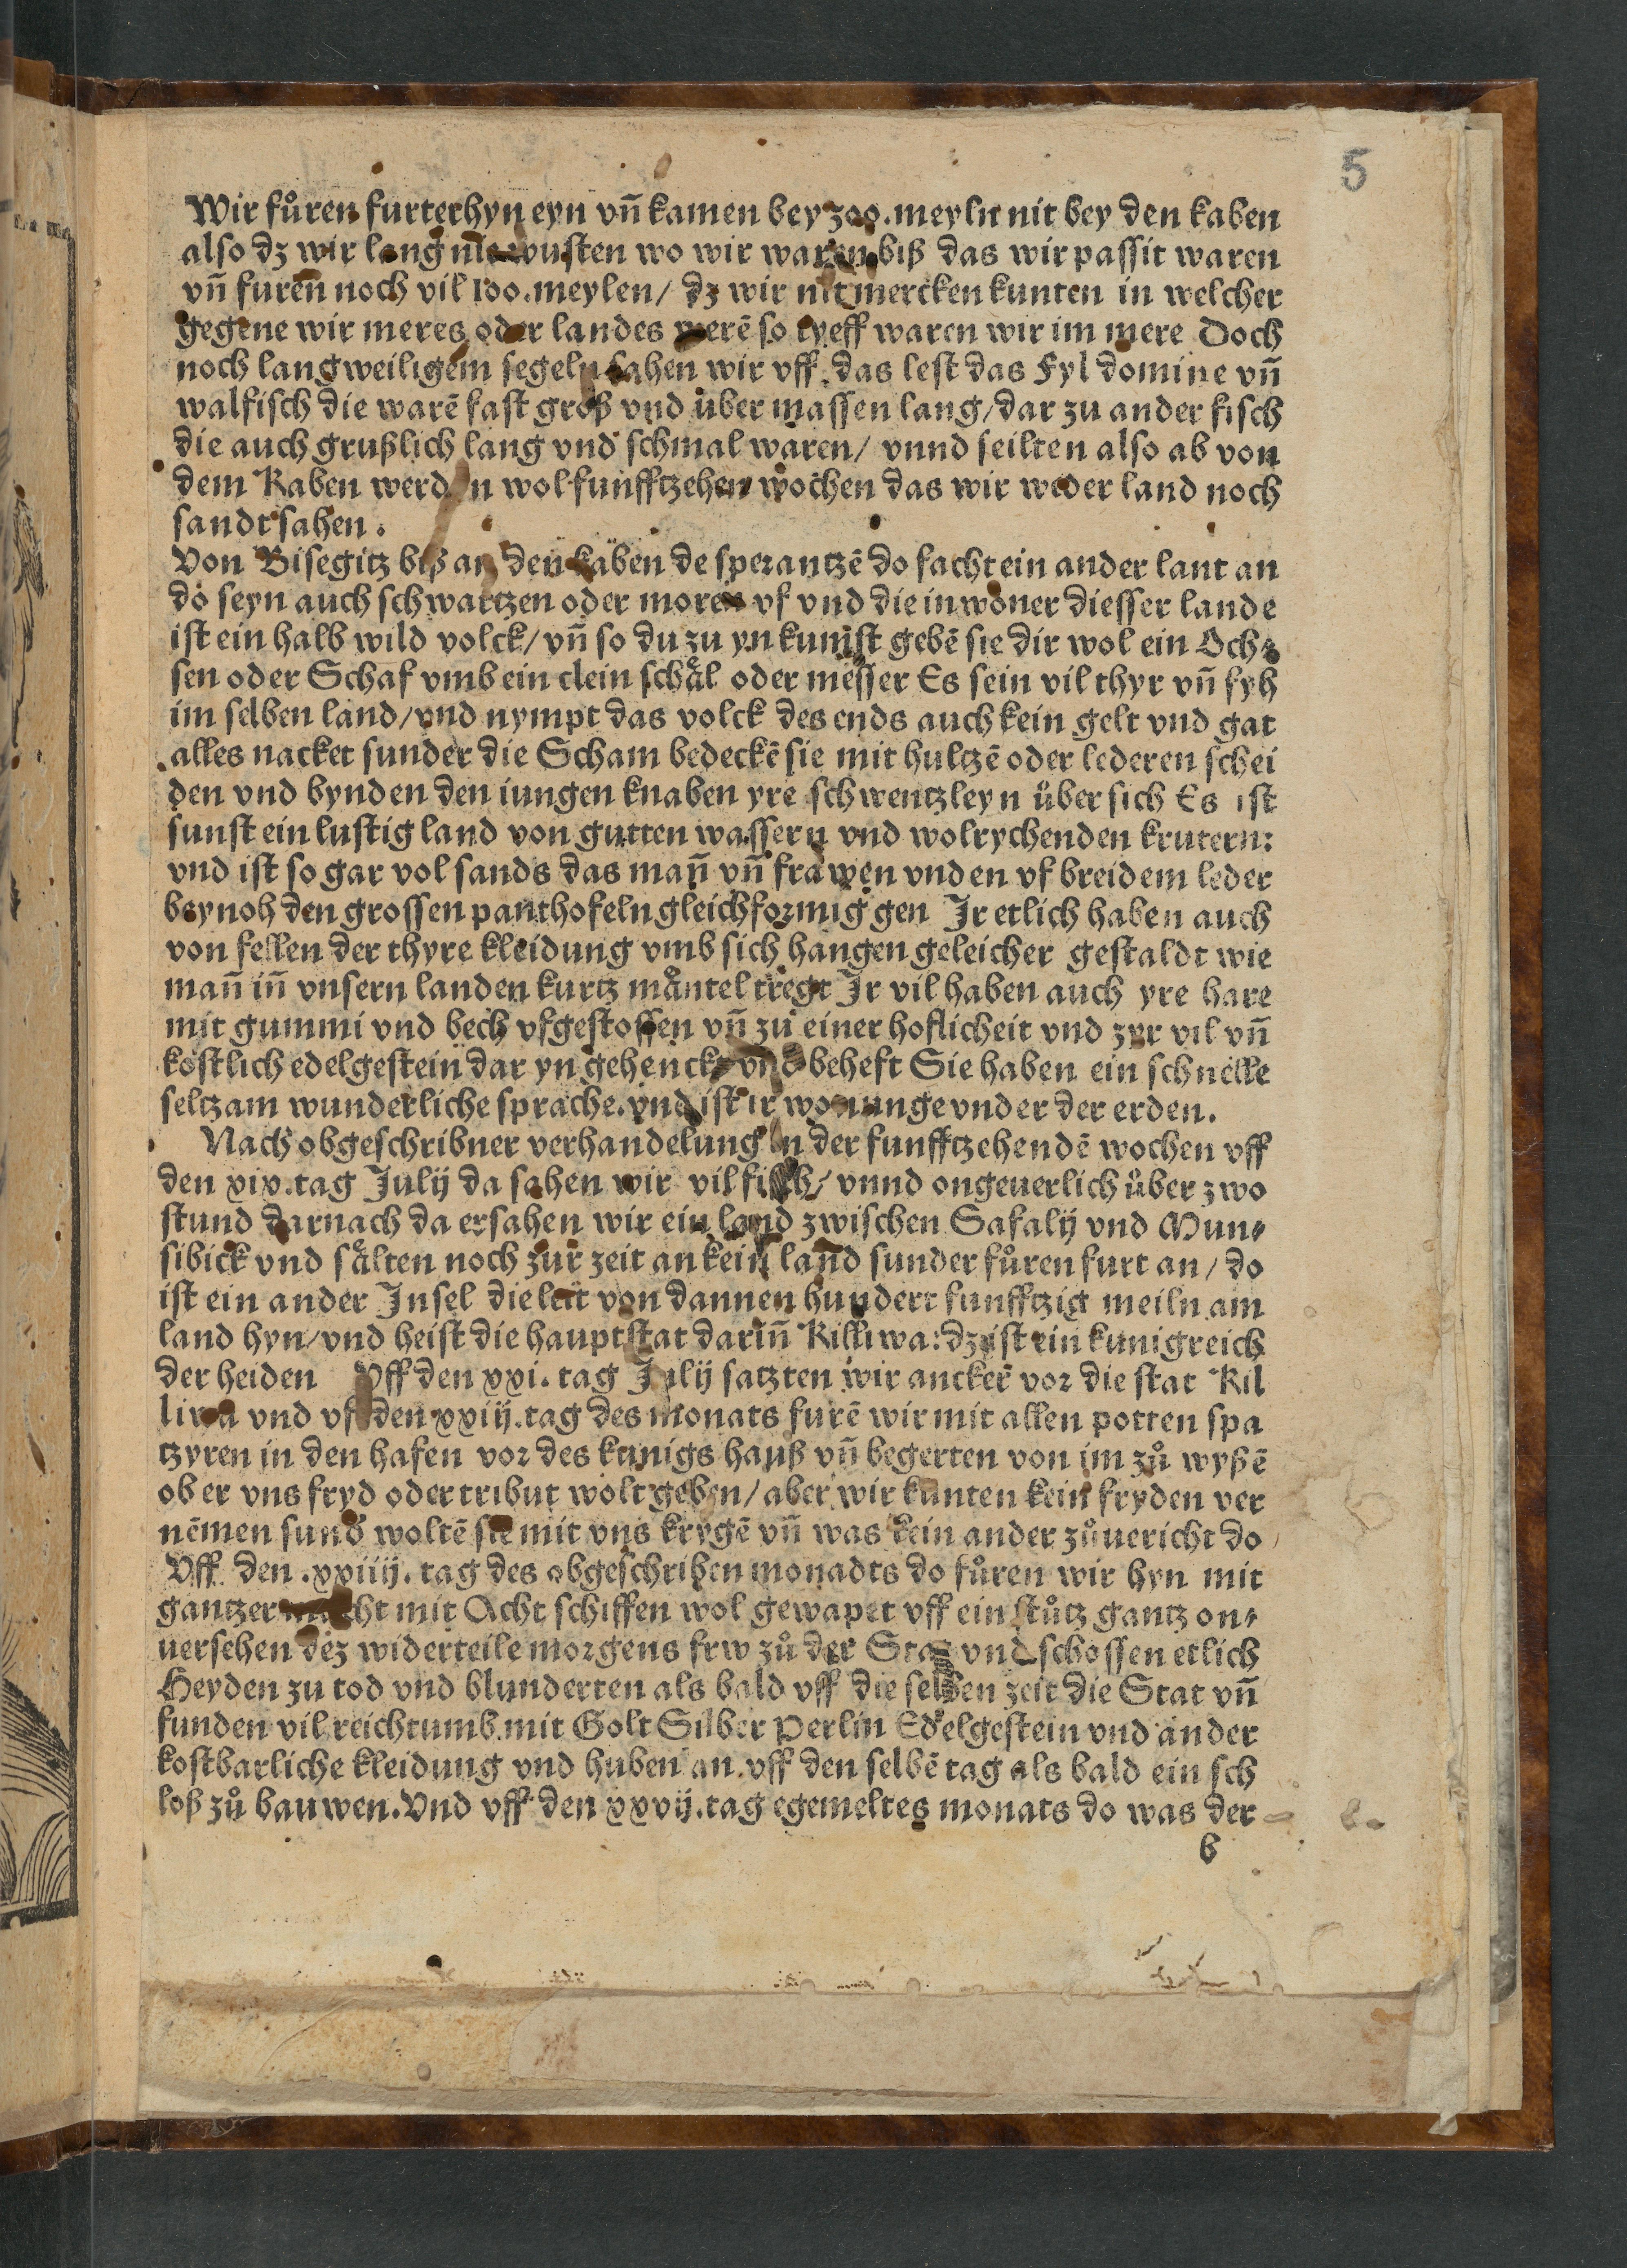 5
Wir fůren furterhyn eyn vñ kamen bey 300. meyln nit bey den kaben
also dz wir lang nit wusten wo wir waren biß das wir passit waren
vñ fureñ noch vil 100. meylen / dz wir nit mercken kunten in welcher
gegene wir meres oder landes werē so tyeff waren wir im mere Doch
noch langweiligem segeln sahen wir vff das lest das Fyl domine vñ
walfisch die warē fast groß vnd über massen lang / dar zu ander fisch
die auch grußlich lang vnd schmal waren / vnnd seilten also ab von
dem Kaben werden wol funfftzehen wochen das wir weder land noch
sandt sahen.
Von Bisegitz biß an den kaben de sperantzē do facht ein ander lant an
do seyn auch schwartzen oder moren vf vnd die inwoner diesser lande
ist ein halb wild volck / vñ so du zu yn kumst gebē sie dir wol ein Och⸗
sen oder Schaf vmb ein clein schål oder messer Es sein vil thyr vñ fyh
im selben land / vnd nympt das volck des ends auch kein gelt vnd gat
alles nacket sunder die Scham bedeckē sie mit hultzē oder lederen schei
den vnd bynden den iungen knaben yre schwentzleyn über sich Es ist
sunst ein lustig land von gutten wassern vnd wolrychenden krutern:
vnd ist so gar vol sands das mañ vñ frawen vnden vf breidem leder
beynoh den grossen panthofeln gleichformig gen Jr etlich haben auch
von fellen der thyre kleidung vmb sich hangen geleicher gestaldt wie
mañ iñ vnsern landen kurtz måntel tregt Jr vil haben auch yre hare
mit gummi vnd bech vfgestossen vñ zu einer hoflicheit vnd zyr vil vñ
kostlich edelgestein dar yn gehenckt vnd beheft Sie haben ein schnelle
seltzam wunderliche sprache. vnd ist ir wonunge vnder der erden.
Nach obgeschribner verhandelung in der funfftzehendē wochen vff
den xix. tag Julij da sahen wir vil fisch / vnnd ongeuerlich über zwo
stund darnach da ersahen wir ein land zwischen Safalij vnd Mun⸗
sibick vnd sålten noch zur zeit an kein land sunder fůren furt an / do
ist ein ander Jnsel die leit von dannen hundert funfftzig meiln am
land hyn / vnd heist die hauptstat dariñ Killiwa: dz ist ein kunigreich
der heiden Vff den xxi. tag Julij satzten wir anckeř vor die stat Kil
liwa vnd vf den xxiij. tag des monats furē wir mit allen potten spa
tzyren in den hafen vor des kunigs hauß vñ begerten von im zů wyßē
ob er vns fryd oder tribut wolt geben / aber wir kunten kein fryden ver
nēmen sund woltē sie mit vns krygē vñ was kein ander zůuericht do
Vff den .xxiiij. tag des obgeschriben monadts do fůren wir hyn mit
gantzer macht mit Acht schiffen wol gewapet vff ein stůtz gantz on⸗
uersehen dez widerteile morgens frw zů der Stat vnd schossen etlich
Heyden zu tod vnd blunderten als bald vff die selben zeit die Stat vñ
funden vil reichtumb mit Golt Silber Perlin Edelgestein vnd ander
kostbarliche kleidung vnd huben an vff den selbē tag als bald ein sch
loß zů bauwen. Vnd vff den xxvij. tag egemeltes monats do was der
b